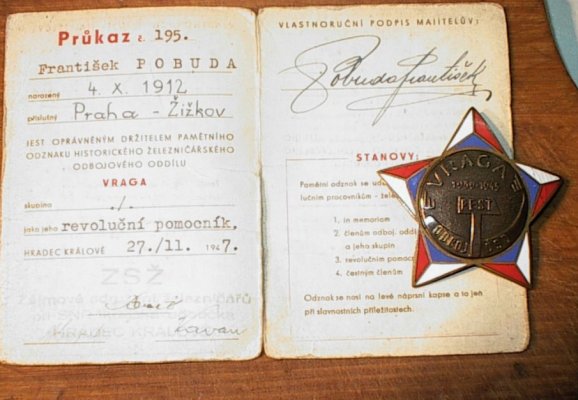 Průkaz č. 195.
František POBUDA
narozený 4. X. 1912
příslušný Praha - Žižkov
JEST OPRÁVNĚNÝM DRŽITELEM PAMĚTNÍHO
ODZNAKU HISTORICKÉHO ŽELEZNIČÁŘSKÉHO
ODBOJOVÉHO ODDÍLU
VRAGA
skupina ./.
jako jeho revoluční pomocník,
HRADEC KRÁLOVÉ 27./11. 1947.
ZSŽ
HRADEC
VLASTNORUČNÍ PODPIS MAJITELŮV:
Pobuda František
STANOVY:
Pamětní odznak se
lučním pracovníkům -
1. in memoriam
2. členům odboj.
a jeho skupin
3. revolučním
4. čestným členům
Odznak se nosí na levé náprsní kapse a to jen
při slavnostních příležitostech.
VRAGA
1939-1945